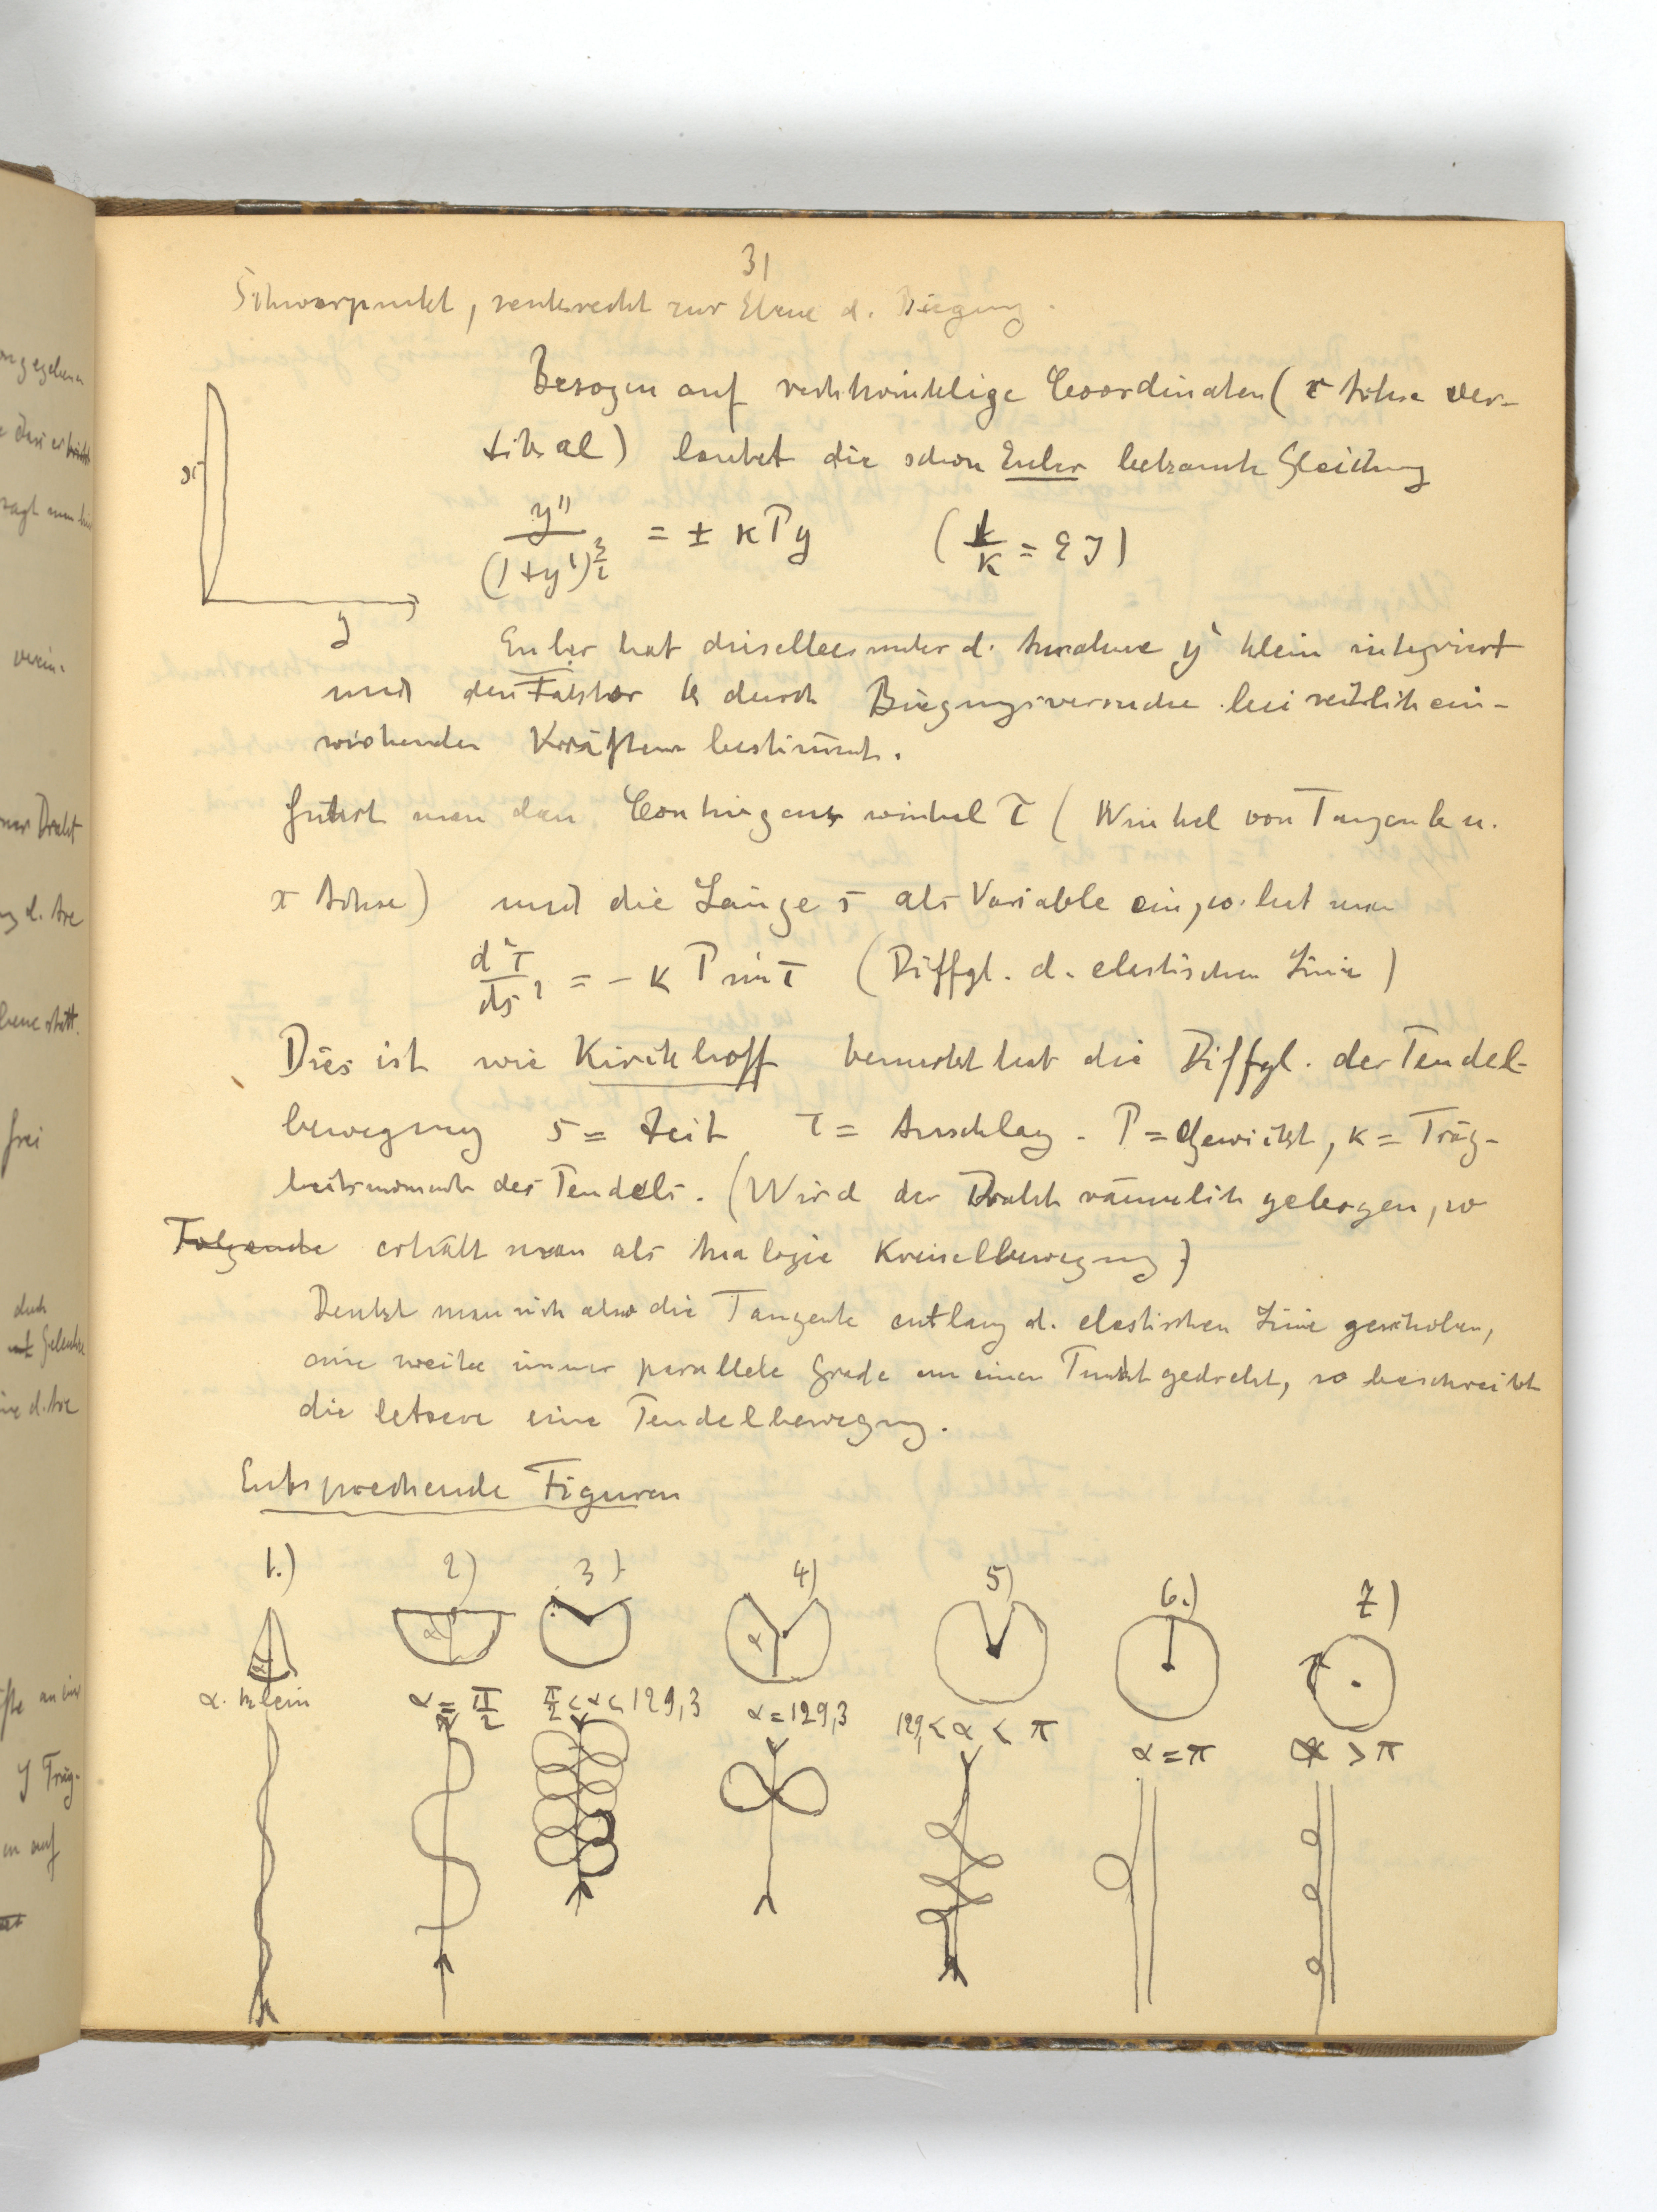 31
Schwerpunkt, senkrecht zur Ebene d. Biegung.
Bezogen auf rechtwinklige Coordinaten (x Achse ver-
tikal) lautet die schon Euler bekannte Gleichung
x
y''/(1+y')^{3/2} = ± κPy (1/κ = EJ)
y
Euler hat dieselbe unter d. Annahme y' klein integriert
und den Faktor k durch Biegungsversuche bei seitlich ein-
wirkenden Kräften bestimmt.
Führt man den Contingenzwinkel τ (Winkel von Tangente u.
x Achse) und die Länge s als Variable ein, so hat man
d²τ/ds² = - κ P sin τ (Diffgl. d. elastischen Linie)
Dies ist wie Kirchhoff bemerkt hat die Diffgl. der Pendel-
bewegung s = Zeit τ = Ausschlag. P = Gewicht, κ = Träg-
heitsmoment des Pendels. (Wird der Draht räumlich gebogen, so
Folgende erhält man als Analogie Kreiselbewegung)
Denkt man sich also die Tangente entlang d. elastischen Linie geschoben,
eine zweite immer parallele Grade um einen Punkt gedreht, so beschreibt
die letzere eine Pendelbewegung.
Entsprechende Figuren
1.) 2) 3) 4) 5) 6.) 7)
α α α
α. klein α = π/2 π/2 < α < 129,3 α = 129,3 129, < α < π α = π α > π